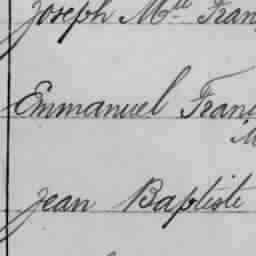 Joseph M^el Fran
Emmanuel Fran
Jean Baptiste